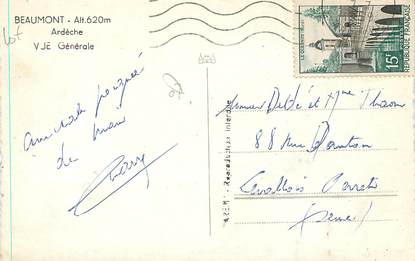 BEAUMONT - Alt.620m
Ardèche
VJE Générale
Amicale pensée
de
Monsieur Deldé et Mme
88 Rue Danton
Levallois Perret
(Seine)
LE QUESNOY
15F
REPUBLIQUE FRANÇAISE
Reproduction interdite